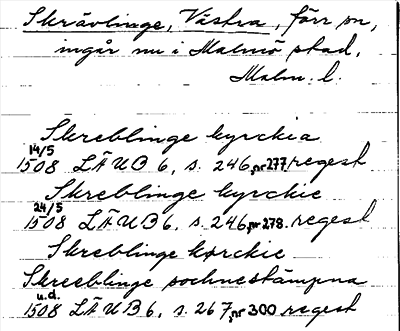 Skrävlinge, Västra, förr sn,
ingår nu i Malmö stad,
Malm. l.
Skreblinge kyrckia
14/5
1508 LÄUB 6, s. 246, nr 277. regest
Skreblinge kyrckie
24/5
1508 LÄUB 6, s. 246, nr 278. regest
Skreblinge kørckie
Skreeblinge sochnestämpna
u.d.
1508 LÄUB 6, s. 267, nr 300 regest